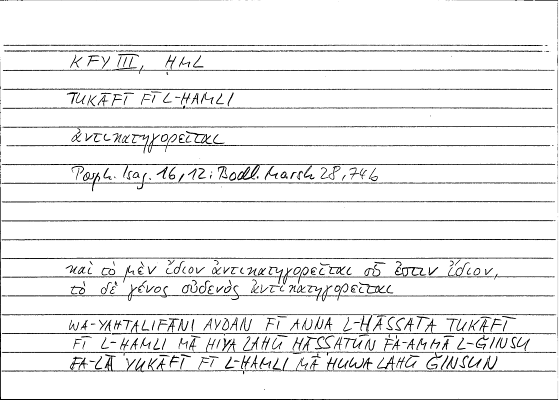 KFY III, ḤML
TUKĀFĪ FĪ L-ḤAMLI
ἀντικατηγορεῖται
Porph. Isag. 16, 12; Bodl. Marsh 28, 74b
καὶ τὸ μὲν ἴδιον ἀντικατηγορεῖται οὗ ἐστιν ἴδιον,
τὸ δὲ γένος οὐδενὸς ἀντικατηγορεῖται
WA-YAḪTALIFĀNI AYḌAN FĪ ANNA L-ḪĀṢṢATA TUKĀFĪ
FĪ L-ḤAMLI MĀ HIYA LAHŪ ḪĀṢṢATUN FA-AMMĀ L-ǦINSU
FA-LĀ YUKĀFĪ FĪ L-ḤAMLI MĀ HUWA LAHŪ ǦINSUN